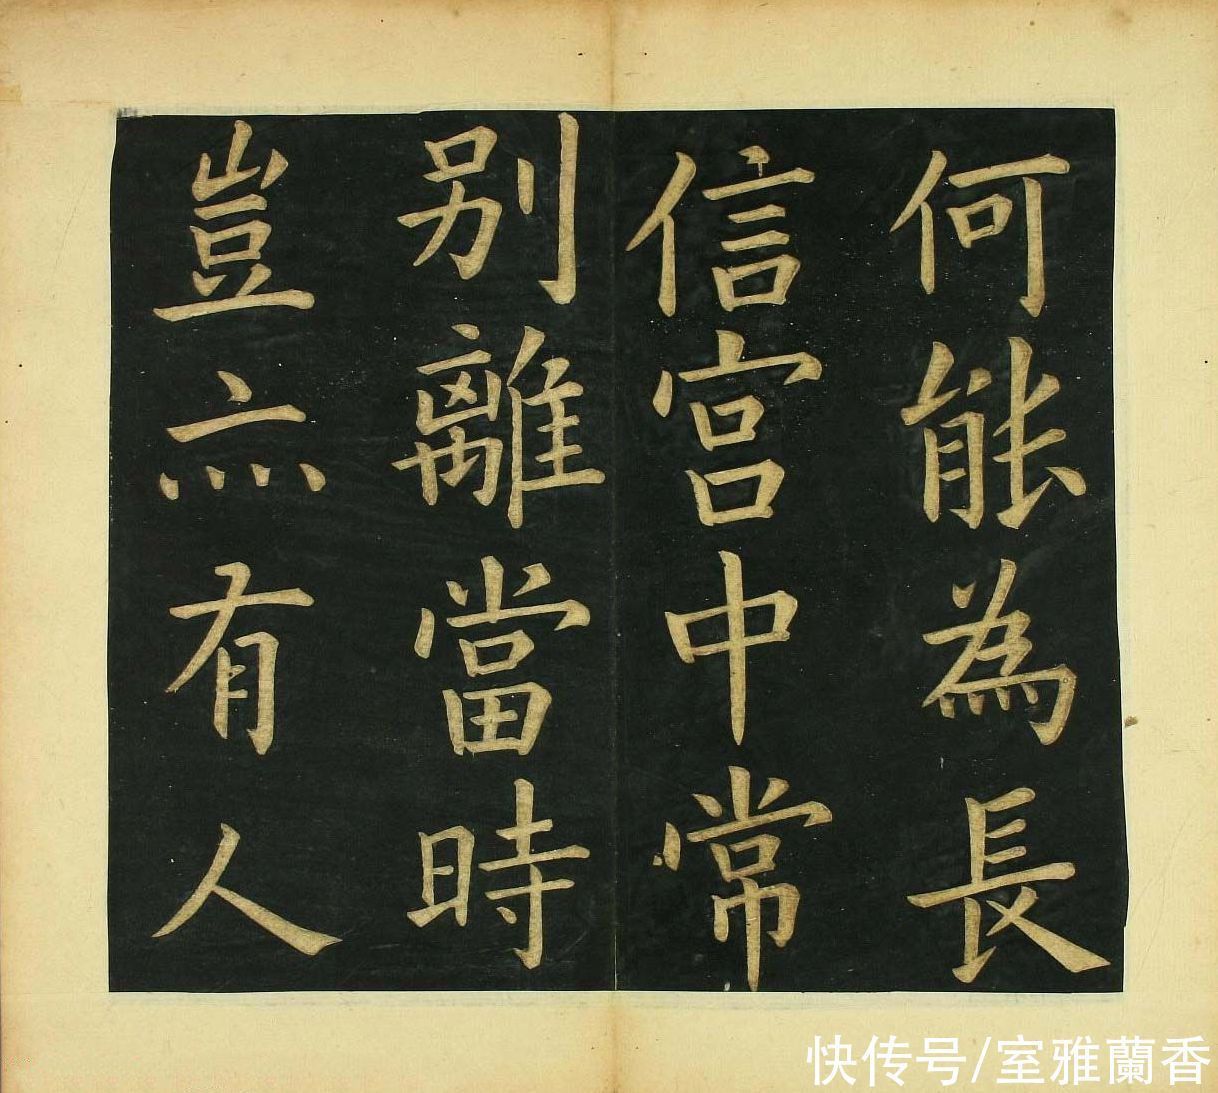 何能為長
信宫中常
别離當時
豈亦有人
快传号/室雅蘭香